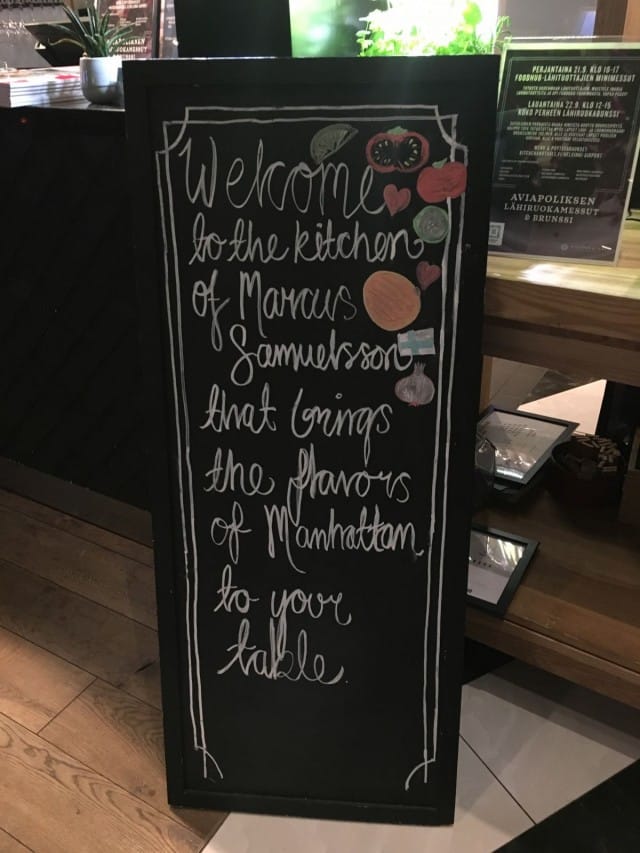 Welcome
to the kitchen
of Marcus
Samuelsson
that brings
the flavors
of Manhattan
to your
table.
PERJANTAINA 21.9. KLO 16-17
FOODHUB-LÄHITUOTTAJIEN MINIMESSUT
LAUANTAINA 22.9. KLO 12-15
KOKO PERHEEN LÄHIRUOKABRUNSSI
MENU & PÖYTÄVARAUKSET
AVIAPOLIKSEN
LÄHIRUOKAMESSUT
& BRUNSSI